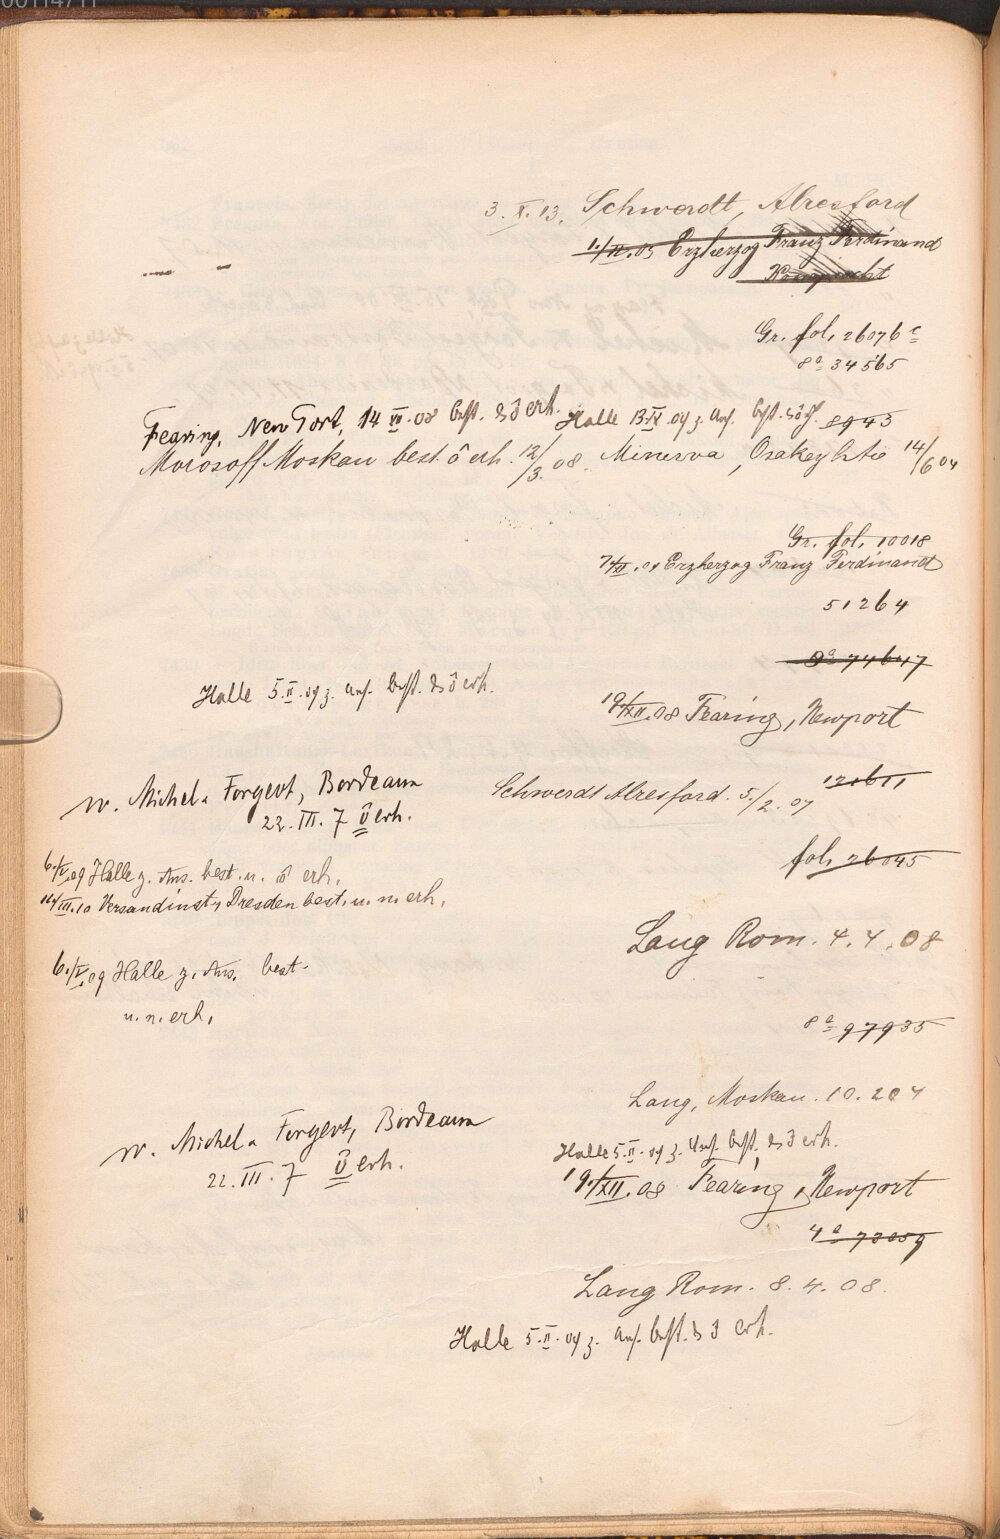 3. X. 13. Schwerdt, Alresford
1./II. 05 Erzherzog Franz Ferdinand
Konopischt
Gr. fol. 26076 c
8° 34565
Fearing, New Port, 14 VII. 08 best. & ō erh.
Halle 13. IV. 09 z. Ans. best. & ō erh. 8943
Morosoff Moskau best. ō erh. 12/3. 08.
Minerva, 14/6 04
Gr. fol. 10018
Erzherzog Franz Ferdinand
51264
8° 74647
Halle 5. II. 09 z. Ans. best. & ō erh.
19/XII. 08 Fearing, Newport
w. Michel & Forgeot, Bordeaux
22. III. 7 ō erh.
Schwerdt Alresford. 5./2. 07
12611
6./V. 09 Halle z. Ans. best. u. ō erh.
14/III. 10 Versandinst. Dresden best. u. n. erh.
fol. 26045
Lang Rom. 4. 4. 08
6./V. 09 Halle z. Ans. best.
u. n. erh.
8° 97935
Lang, Moskau. 10. 2 04
w. Michel & Forgeot, Bordeaux
22. III. 7 ō erh.
Halle 5. II. 09 z. Ans. best. & ō erh.
19./XII. 08 Fearing, Newport
4° 73059
Lang Rom. 8. 4. 08.
Halle 5. II. 09 z. Ans. best. & ō erh.